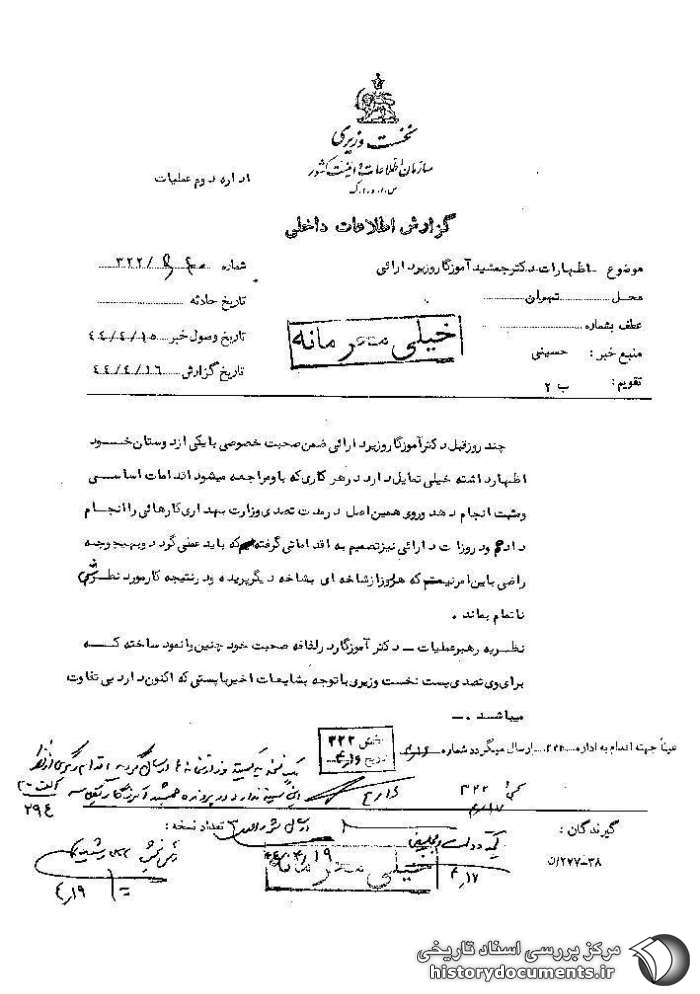 نخست وزیری
سازمان اطلاعات و امنیت کشور
س.ا.و.ا.ک
اداره دوم عملیات
گزارش اطلاعات داخلی
موضوع اظهارات دکتر جمشید آموزگار وزیر دارائی
شماره ۳۲۲/
محل تهران
تاریخ حادثه
عطف بشماره
تاریخ وصول خبر ۴۴/۴/۱۵
خیلی محرمانه
منبع خبر: حسینی
تاریخ گزارش ۴۴/۴/۱۶
تقویم: ب ۲
چند روز قبل دکتر آموزگار وزیر دارائی ضمن صحبت خصوصی با یکی از دوستان خود
اظهار داشته خیلی تمایل دارد در هر کاری که باو مراجعه میشود اقدامات اساسی
و مثبت انجام دهد و روی همین اصل در مدت تصدی وزارت بهداری کارهائی را انجام
داده و در وزارت دارائی نیز تصمیم به اقداماتی گرفته که باید عملی گردد و بهیچوجه
راضی باین امر نیستم که هر روز از شاخه ای بشاخه دیگر پریده و در نتیجه کار مورد نظرش
ناتمام بماند .
نظریه رهبر عملیات – دکتر آموزگار در لفافه صحبت خود چنین وانمود ساخته که
برای وی تصدی پست نخست وزیری با توجه بشایعات اخیر با پستی که اکنون دارد بی تفاوت
میباشد . –
عیناً جهت اقدام به اداره ۳۲۲ ارسال میگردد شماره
بخش ۳۲۲
تاریخ ۴/۱۶
۳۲۲
۴/۱۷
۴/۱۶
۲۹۴
گیرندگان :
تعداد نسخه : ۳
۳۸-۲۷۷/ن
۴/۱۷
۴۴/۴/۱۹
خیلی محرمانه
۴/۱۹
مرکز بررسی اسناد تاریخی
historydocuments.ir